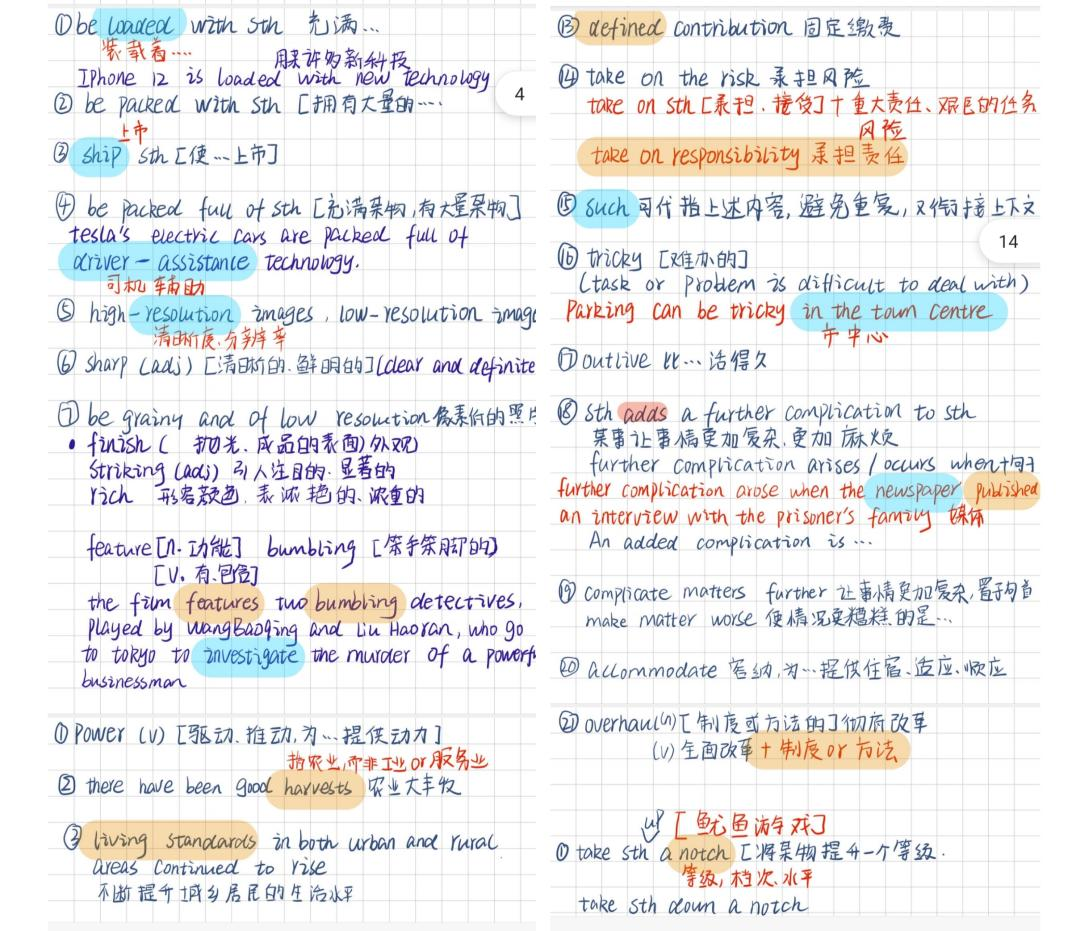 ①be loaded with sth 充满…
装载着….
用来许多新科技
IPhone 12 is loaded with new technology
② be packed with sth [拥有大量的…
4
上市
③ ship sth [使…上市]
④ be packed full of sth [充满某物,有大量某物]
tesla's electric cars are packed full of
driver-assistance technology.
司机 辅助
⑤ high-resolution images, low-resolution image
清晰度.分辨率
⑥ sharp (adj) [清晰的.鲜明的](clear and definite
⑦ be grainy and of low resolution像素低的照片
• finish ( 抛光.成品的表面)外观)
striking (adj) 引人注目的.显著的
rich 形容颜色.表浓艳的、浓重的
feature [n.功能] bumbling [笨手笨脚的]
[V.有.包含]
the film features two bumbling detectives,
played by WangBaoqing and Liu Haoran, who go
to tokyo to investigate the murder of a powerf
businessman
① Power (V) [驱动、推动,为…提供动力]
指农业,而非工业or服务业
② there have been good harvests 农业大丰收
③ living standards in both urban and rural
areas continued to rise
不断提升城乡居民的生活水平
⑬ defined contribution 固定缴费
⑭ take on the risk 承担风险
take on sth [承担.接受]+重大责任、艰巨的任务
风险
take on responsibility 承担责任
⑮ such 可代指上述内容,避免重复,又衔接上下文
14
⑯ tricky [难办的]
(task or problem is difficult to deal with)
Parking can be tricky in the town centre
市中心
⑰ outlive 比…活得久
⑱ sth adds a further complication to sth
某事让事情更加复杂.更加麻烦
further complication arises / occurs when+句子
further complication arose when the newspaper published
an interview with the prisoner's family 媒体
An added complication is …
⑲ complicate matters further 让事情更加复杂,置于句首
make matter worse 使情况更糟糕的是…
⑳ accommodate 容纳,为…提供住宿、适应、顺应
㉑ overhaul(n) [制度或方法的]彻底改革
(V) 全面改革+制度or方法
up [鱿鱼游戏]
① take sth a notch [将某物提升一个等级.
等级,档次.水平
take sth down a notch